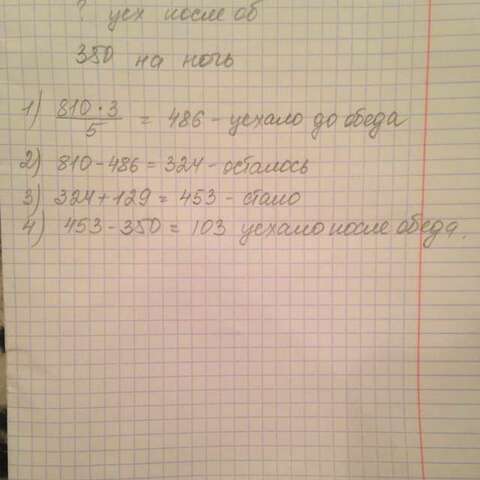 ? усх после об
350 на ночь
1) 810·3/5 = 486 - уехало до обеда
2) 810-486=324-осталось
3) 324+129=453-стало
4) 453-350=103 уехало после обеда.